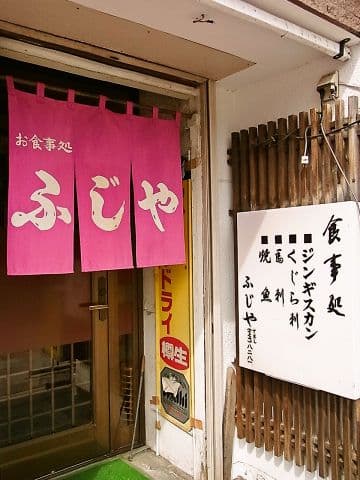 お食事処
ふじや
ドライ
樽生
食事処
■ジンギスカン
■くじら料
■馬刺
■焼魚
ふじや